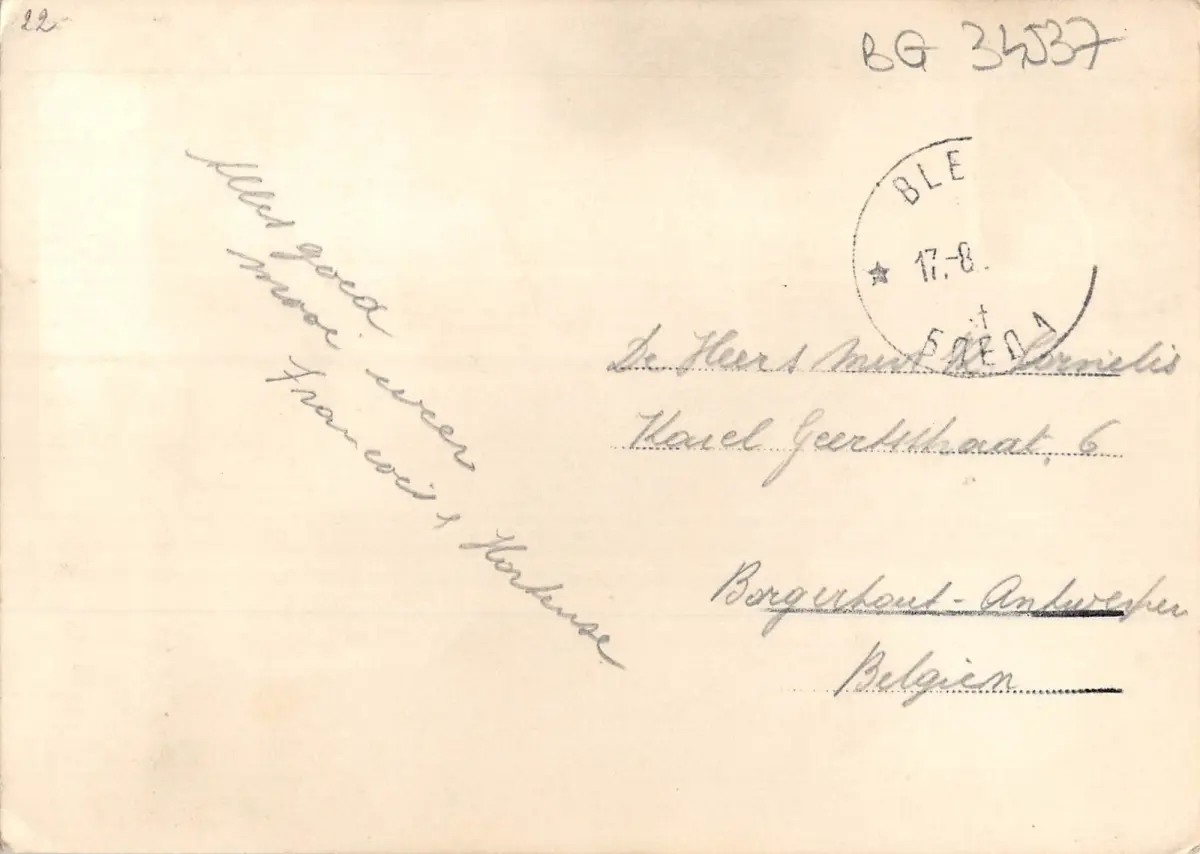 22
BG 34537
BLE
17.-8.
Alles goed
mooi weer
Francois & Hortense
De Heer & Mevr Cornelis
Karel Geertsstraat, 6
Borgerhout - Antwerpen
Belgien